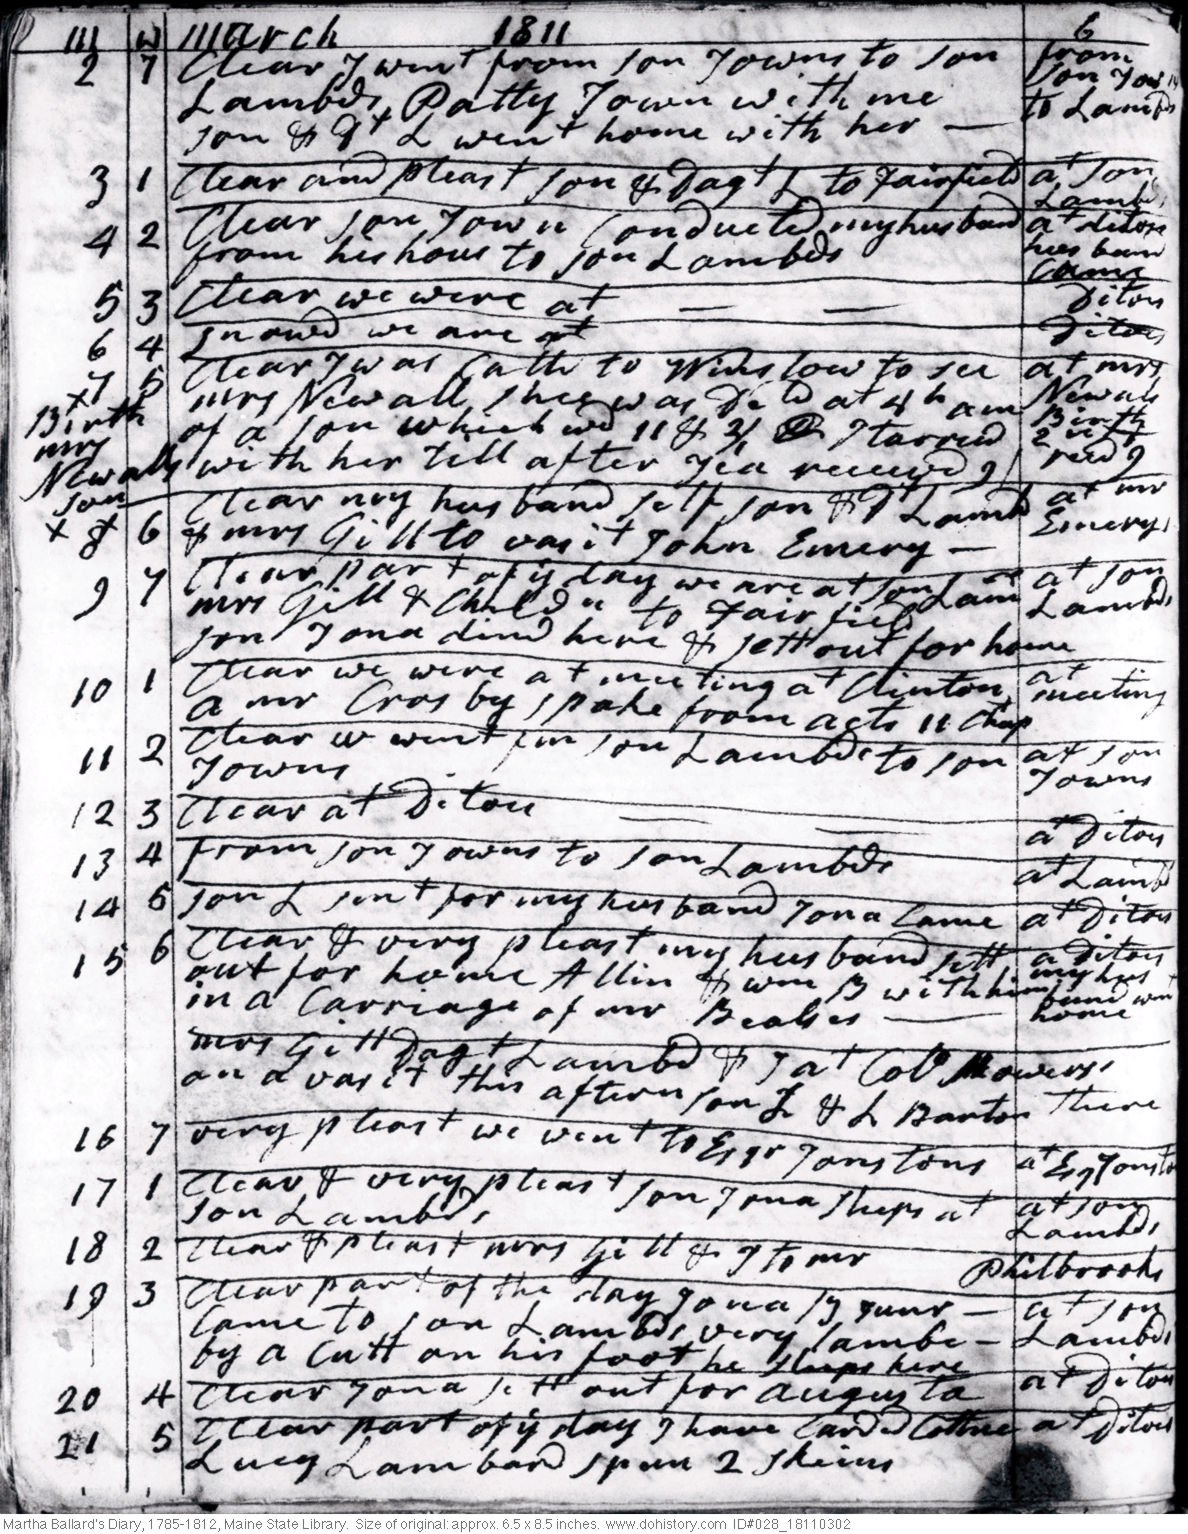 III W March 1811 6
2 7 Clear I went from son Towns to son from
Lambds, Patty Town with me son Towns
son & Dt L went home with her — to Lambds
3 1 Clear and pleast son & Dagt L to Fairfield at son Lambds
4 2 Clear son Town Conducted my husband at ditoes
from his hous to son Lambds husband Came
5 3 Clear we were at — — Ditoes
6 4 Snowd we are at Ditoes
x7 5 Clear I was Calld to Winslow to see at mrs
Birth mrs Newall shee was Deld at 4 h am Newals
mrs of a son which wd 11 & I tarried Birth
Newalls with her till after Tea received 9/ recd 9
son
x 8 6 Clear my husband self son & Dt Lambd at mr
& mrs Gill to vasit John Emery — Emerys
9 7 Clear part of ye day we are at son Lam at son
mrs Gill & Childn to Fairfield Lambds
son Jona dind here & sett out for home
10 1 Clear we were at meeting at Clinton at
a mr Crosby spake from acts 11 Chap meeting
11 2 Clear w went fm son Lambds to son at son
Towns Towns
12 3 Clear at Ditoes — — at Ditoes
13 4 from son Towns to son Lambds at Lambd
14 5 son L sent for my husband Jona Came at Ditoes
15 6 Clear & very pleast my husband sett a Ditoes
out for home Allin & wm B with him my hus
in a Carriage of mr Bealses — band wen home
mrs Gill Dagt Lambd & I at Col Mowers
on a vasit this aftern son L & L Barton There
16 7 very pleast we went to Esqr Jonstons at Esq Jonsto
17 1 Clear & very pleast son Jona sleeps at at son
son Lambds Lambds
18 2 Clear & pleast mrs Gill & I to mr Philbrooks
19 3 Clear part of the day Jona B Junr — at son
Came to son Lambds very lambe — Lambds
by a Cutt on his foot he sleeps here
20 4 Clear Jona sett out for Augusta at Ditoes
21 5 Clear part of ye day I have Carded Cottne at Ditoes
Lucy Lambard spun 2 skeins
Martha Ballard's Diary, 1785-1812, Maine State Library. Size of original: approx. 6.5 x 8.5 inches. www.dohistory.com ID#028_18110302